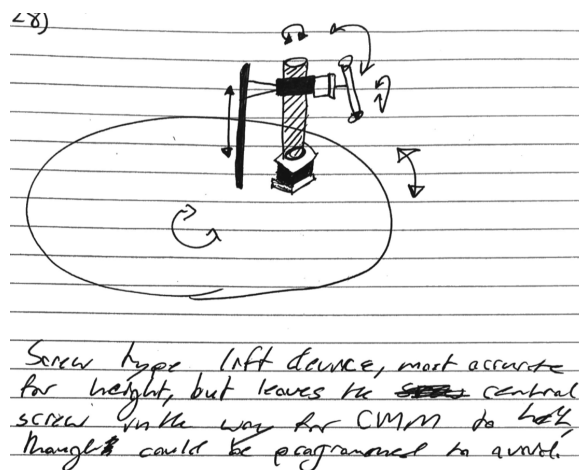 28)
Screw type lift device, most accurate
for height, but leaves the central
screw in the way for CMM to
though could be programmed to avoid.